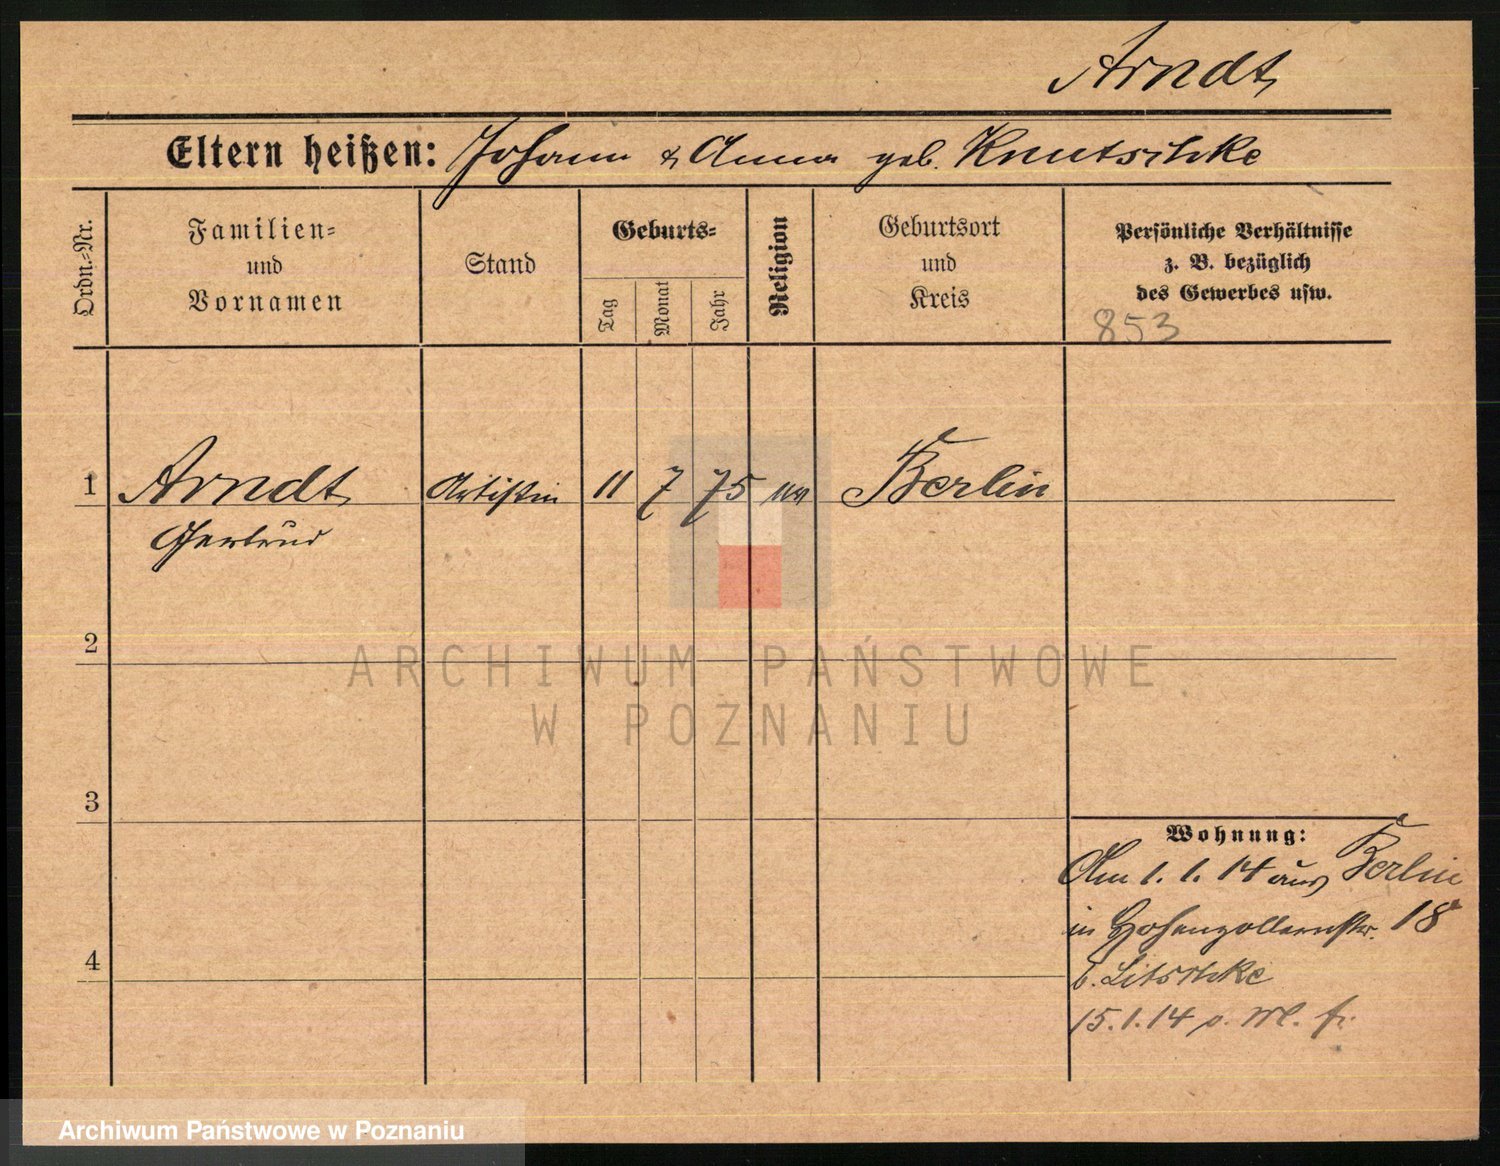 Arndt
Eltern heißen: Johann & Anna geb. Knutschke
Ordn.-Nr.
Familien-
und
Vornamen
Stand
Geburts-
Tag
Monat
Jahr
Religion
Geburtsort
und
Kreis
Persönliche Verhältnisse
z. B. bezüglich
des Gewerbes usw.
853
1 Arndt Artistin 11 7 75 ev Berlin
Gertrud
2
ARCHIWUM PAŃSTWOWE
W POZNANIU
3
Wohnung:
Am 1. 1. 14 aus Berlin
in Hohenzollernstr. 18
4
b. Litschke
15.1.14 v. M. fr.
Archiwum Państwowe w Poznaniu